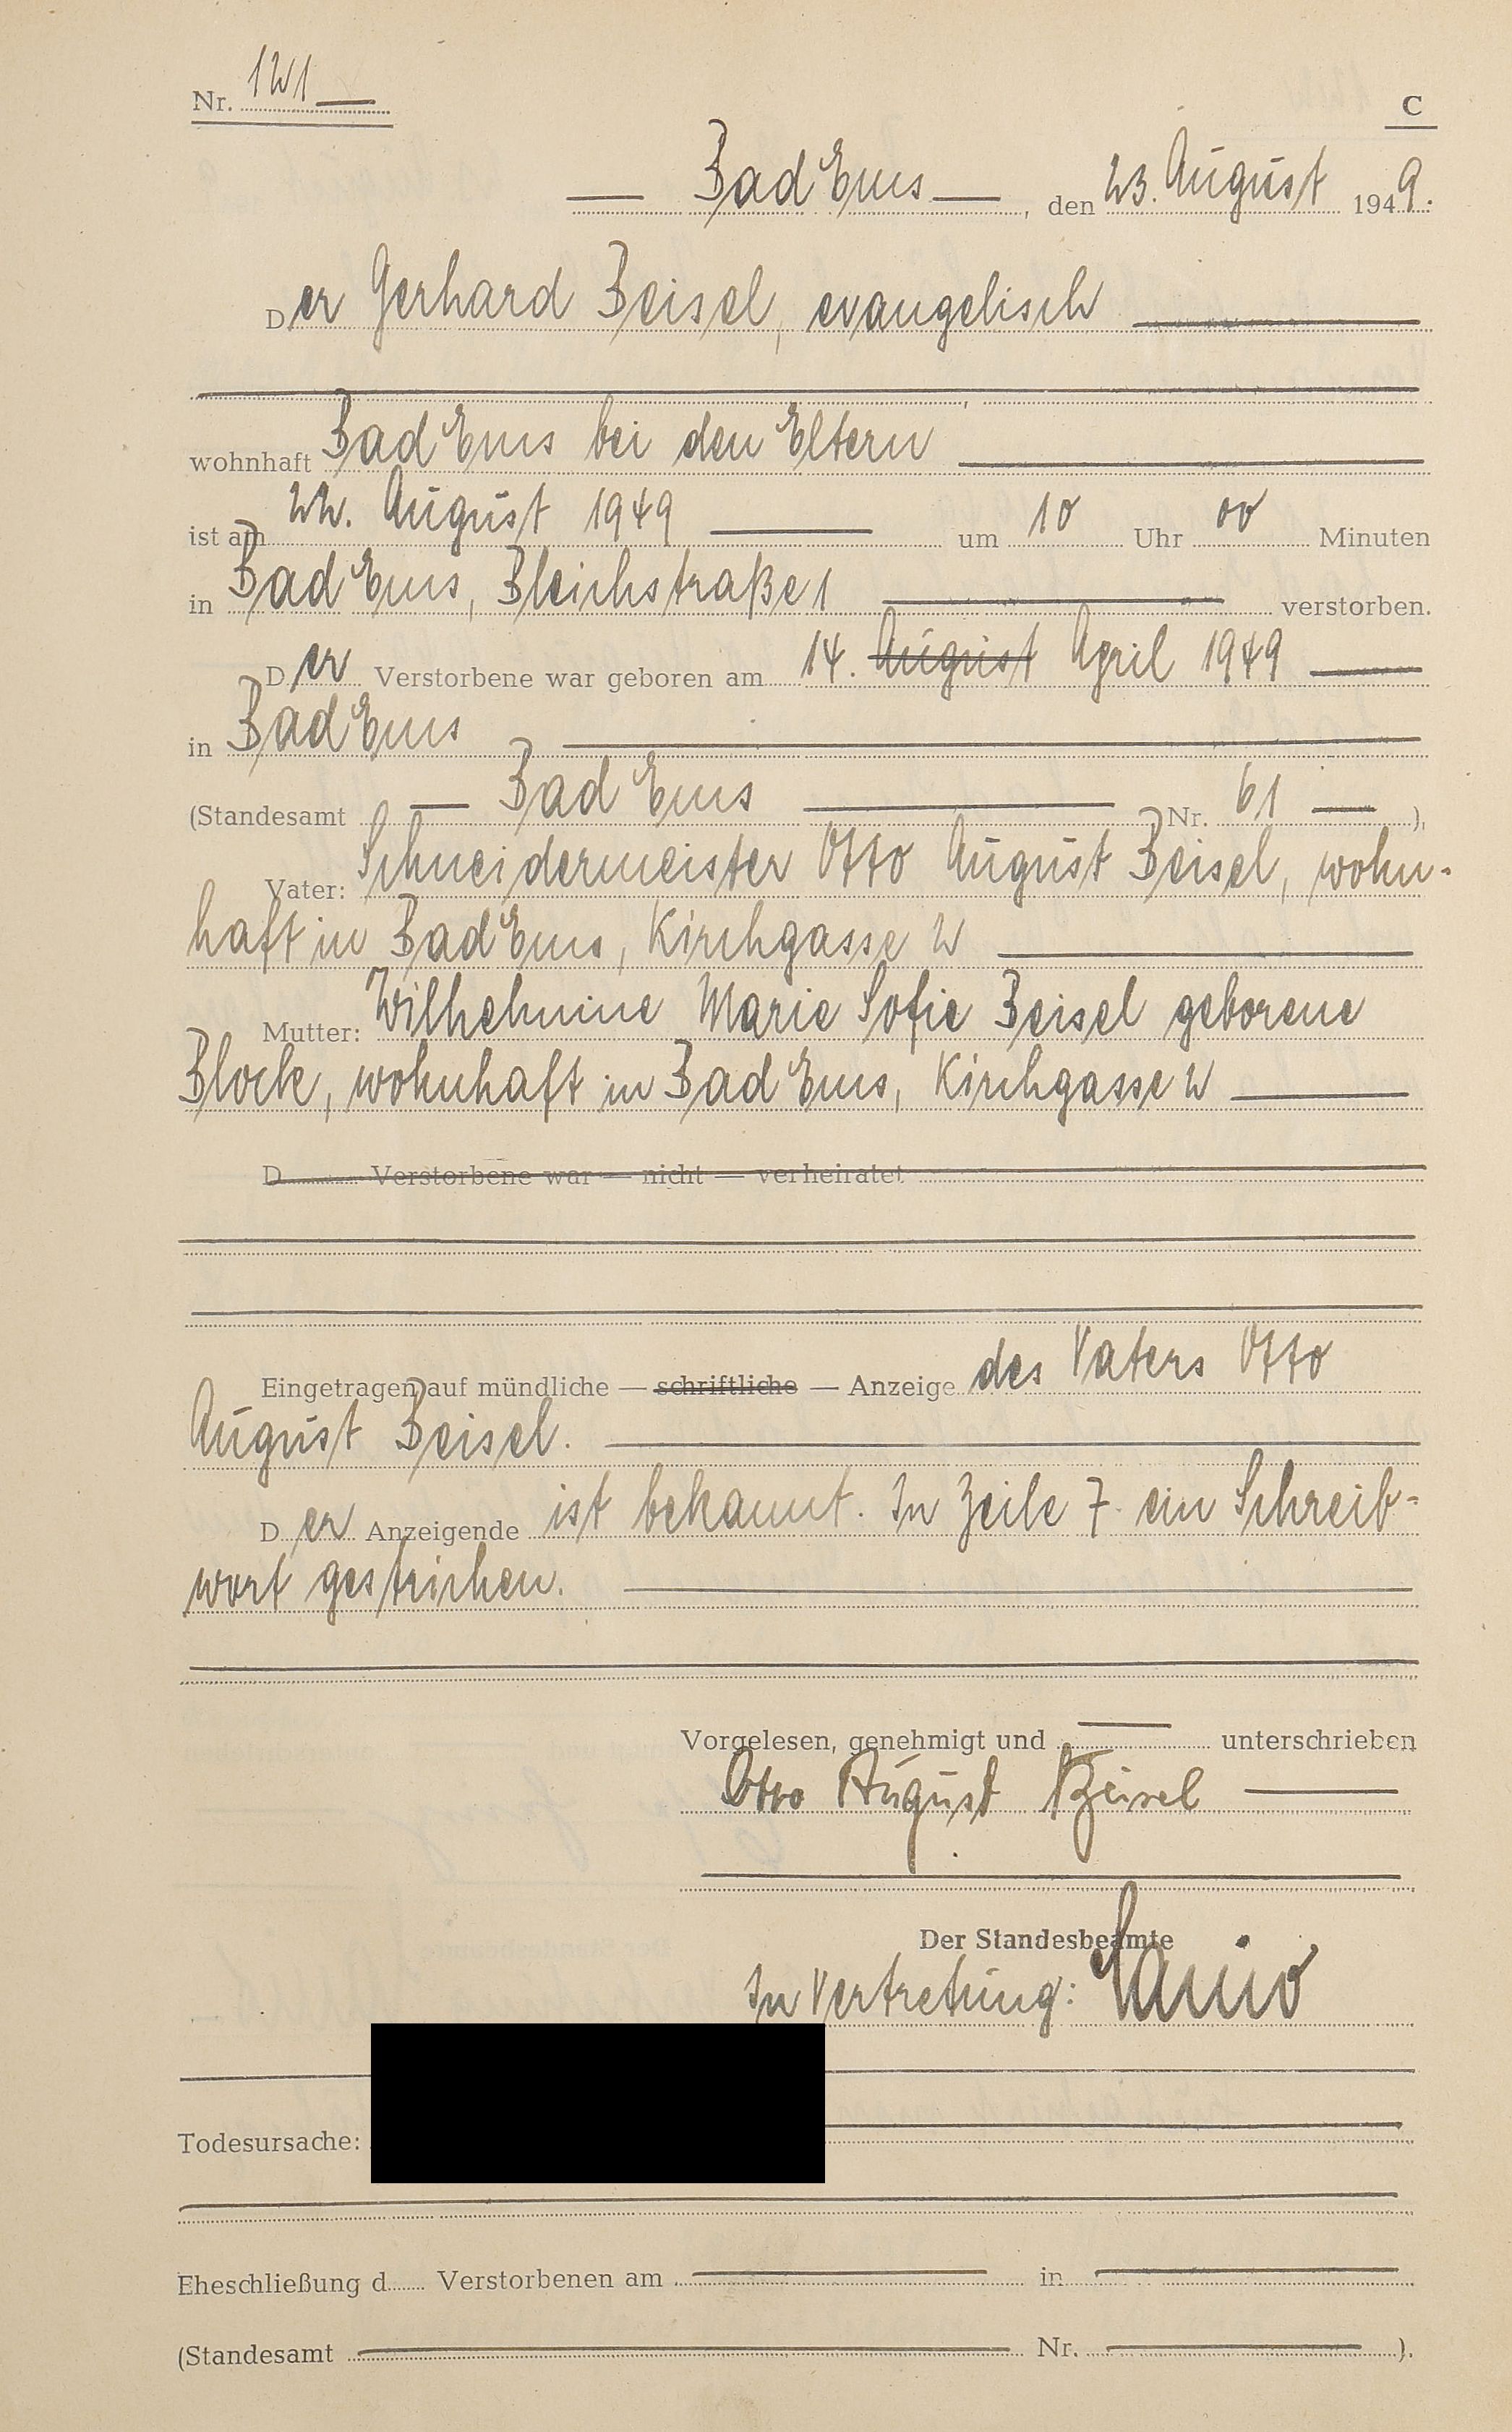 Nr. 121
C
Bad Ems, den 23. August 1949.
Der Gerhard Beisel, evangelisch
,
wohnhaft Bad Ems bei den Eltern
ist am 22. August 1949 um 10 Uhr 00 Minuten
in Bad Ems, Bleichstraße 1 verstorben.
Der Verstorbene war geboren am 14. August April 1949
in Bad Ems
(Standesamt Bad Ems Nr. 61 ),
Vater: Schneidermeister Otto August Beisel, wohn-
haft in Bad Ems, Kirchgasse 2
Mutter: Wilhelmine Marie Sofie Beisel geborene
Block, wohnhaft in Bad Ems, Kirchgasse 2
D Verstorbene war — nicht — verheiratet
Eingetragen auf mündliche — schriftliche — Anzeige des Vaters Otto
August Beisel.
Der Anzeigende ist bekannt. In Zeile 7 ein Schreib-
wort gestrichen.
Vorgelesen, genehmigt und unterschrieben
Otto August Beisel
Der Standesbeamte
In Vertretung:
Todesursache:
Eheschließung d Verstorbenen am in
(Standesamt Nr. ).